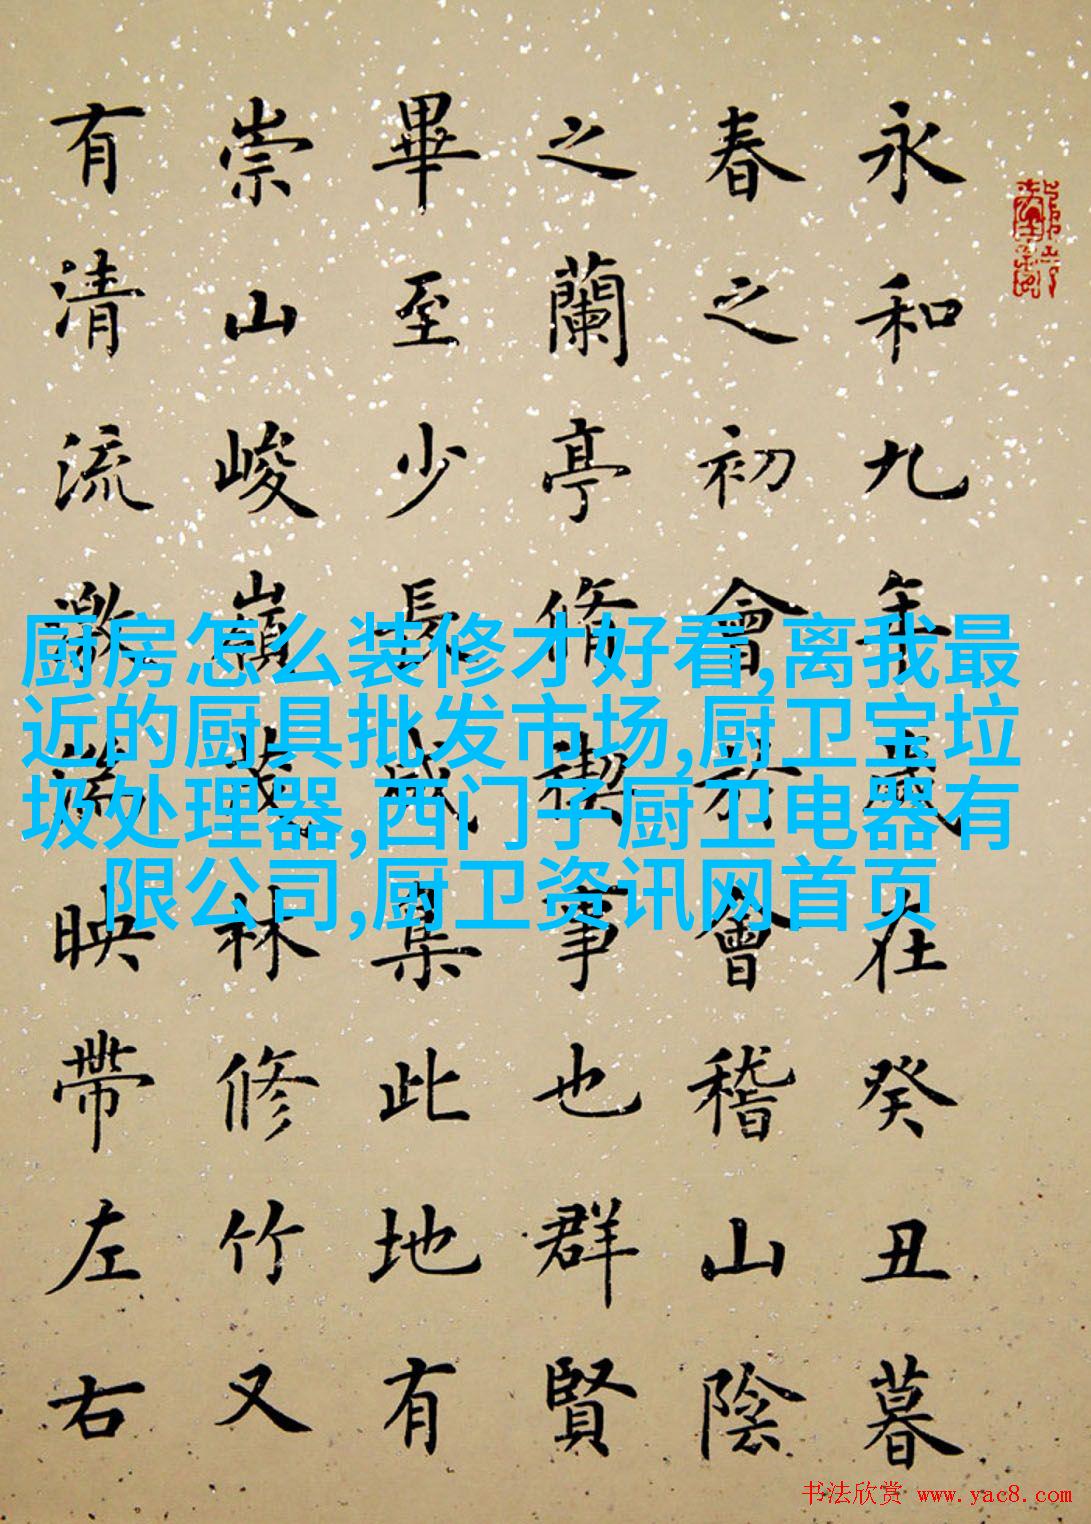 永和九年歲在癸丑暮
春之初會於會稽山陰
之蘭亭脩禊事也群賢
畢至少長咸集此地有
崇山峻嶺茂林修竹又
有清流激湍映帶左右
厨房怎么装修才好看,离我最
近的厨具批发市场,厨卫宝垃
圾处理器,西门子厨卫电器有
限公司,厨卫资讯网首页
书法欣赏 www.yac8.com